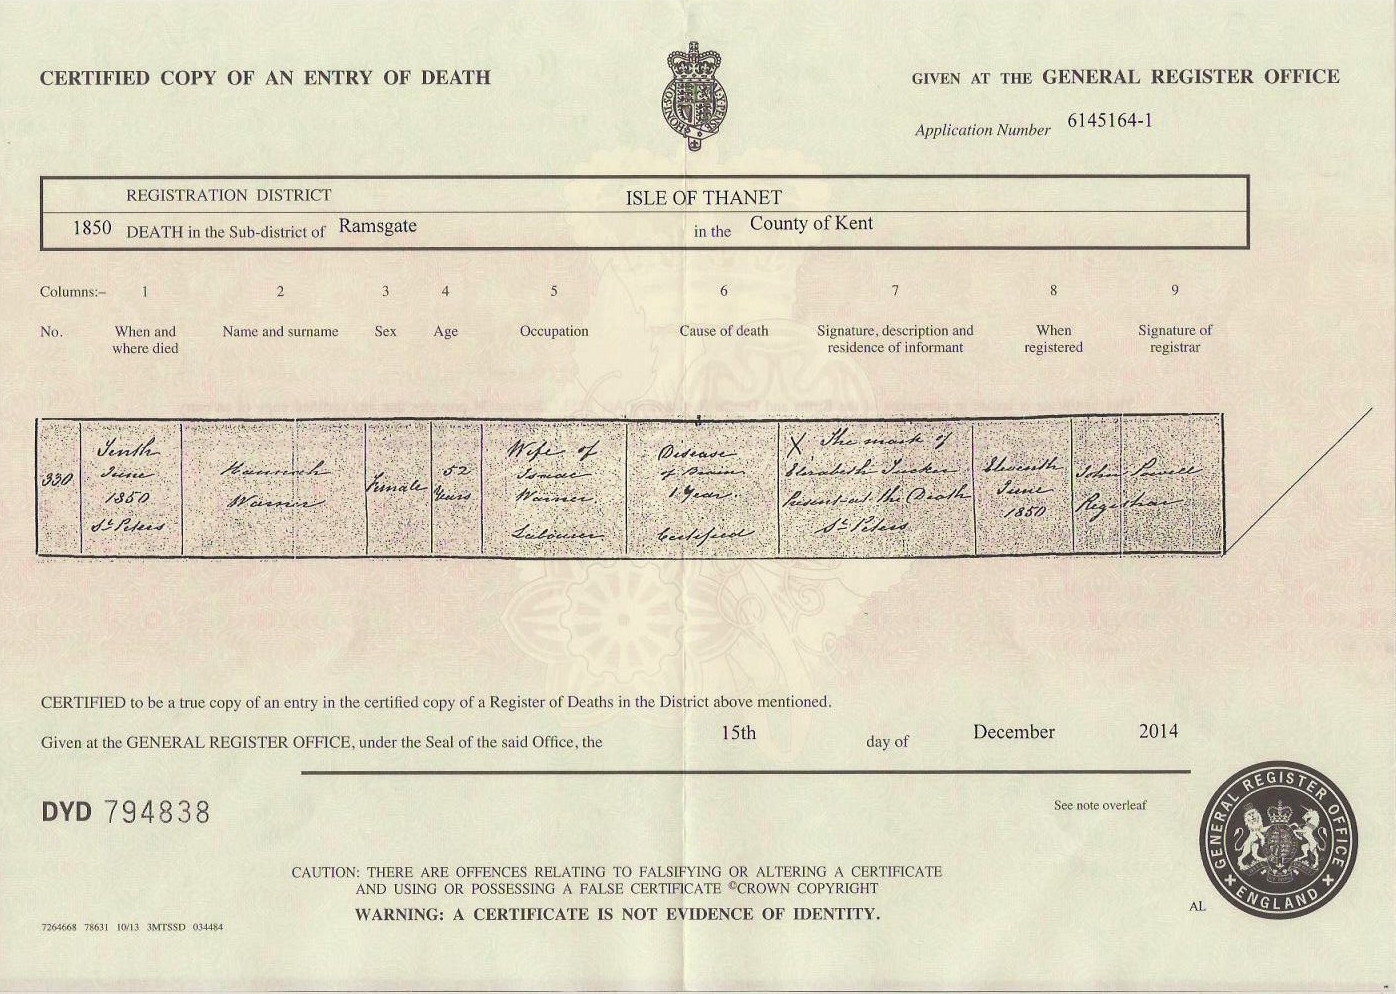 CERTIFIED COPY OF AN ENTRY OF DEATH
GIVEN AT THE GENERAL REGISTER OFFICE
Application Number 6145164-1
REGISTRATION DISTRICT ISLE OF THANET
1850 DEATH in the Sub-district of Ramsgate in the County of Kent
Columns:– 1 2 3 4 5 6 7 8 9
No. When and where died Name and surname Sex Age Occupation Cause of death Signature, description and residence of informant When registered Signature of registrar
330
Tenth
June
1850
St Peters
Warner
Female
52
Years
Wife of
Isaac
Warner
Labourer
Disease
of Brain
1 Year.
Certified
X The mark of
Elizabeth Tucker
Present at the Death
St Peters
Eleventh
June
1850
John
Registrar
CERTIFIED to be a true copy of an entry in the certified copy of a Register of Deaths in the District above mentioned.
Given at the GENERAL REGISTER OFFICE, under the Seal of the said Office, the 15th day of December 2014
DYD 794838
See note overleaf
GENERAL REGISTER OFFICE
ENGLAND
CAUTION: THERE ARE OFFENCES RELATING TO FALSIFYING OR ALTERING A CERTIFICATE
AND USING OR POSSESSING A FALSE CERTIFICATE ©CROWN COPYRIGHT
WARNING: A CERTIFICATE IS NOT EVIDENCE OF IDENTITY.
AL
7264668 78631 10/13 3MTSSD 034484